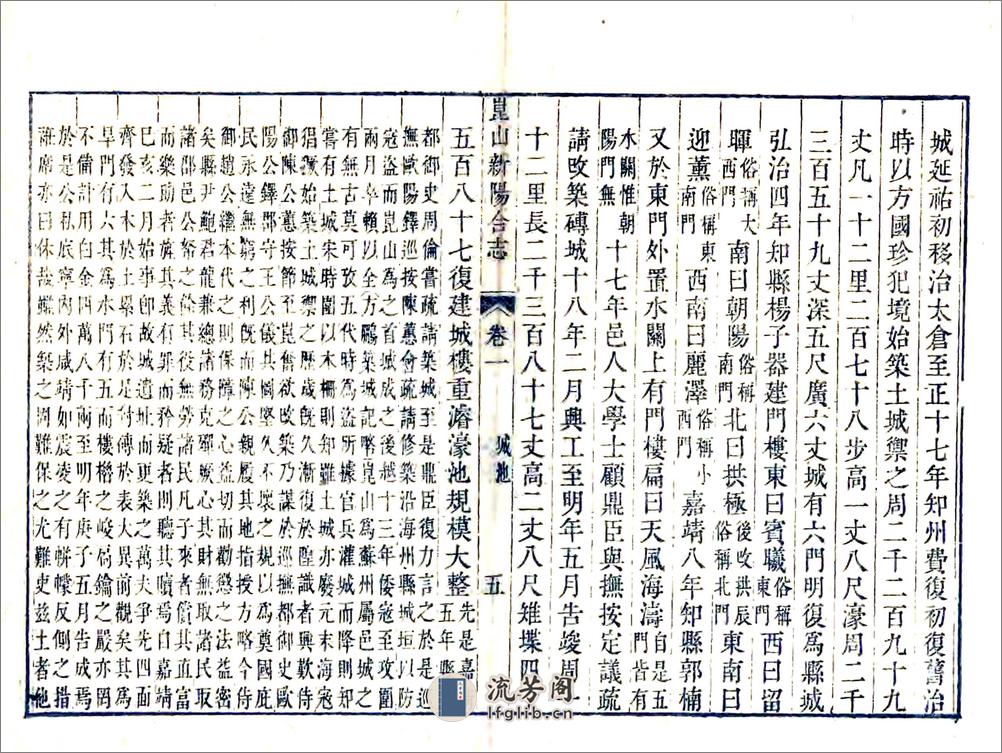 城延祐初移治太倉至正十七年知州費復初復舊治
時以方國珍犯境始築土城禦之周二千二百九十九
丈凡一十二里二百七十八步高一丈八尺濠周二千
三百五十九丈深五尺廣六丈城有六門明復爲縣城
弘治四年知縣楊子器建門樓東曰賓曦俗稱東門西曰留
暉俗稱大西門南曰朝陽俗稱南門北曰拱極後改拱辰俗稱北門東南曰
迎薰俗稱東南門西南曰麗澤俗稱小西門嘉靖八年知縣郭楠
又於東門外置水關上有門樓扁曰天風海濤自是五門皆有
水關惟朝陽門無十七年邑人大學士顧鼎臣與撫按定議疏
請改築磚城十八年二月興工至明年五月告竣周一
十二里長二千三百八十七丈高二丈八尺雉堞四
崑山新陽合志 卷一 城池 五
五百八十七復建城樓重濬濠池規模大整先是嘉五年縣
都御史周倫嘗疏請築城至是鼎臣復力言之於是巡
撫歐陽鐸巡按陳蕙會疏請修築沿海州縣城垣以防
寇盜而崑山爲之首城記畧崑山爲蘇州屬邑城之
兩月卒賴以全方鵬築城
有無古莫可攷五代時爲盜所據官兵灌城而降則知
嘗有土城宋時圍以木柵則知雖土城亦廢元末海寇
猖獗始築土城禦之歷歲旣久漸復於隍識者興歎侍
御陳公蕙按節至崑奮欲改築乃謀於巡撫都御史歐
陽公鐸郡守王公儀共圖堅久不壞之規以爲奠國庇
民永遠無窮之利而陳公親履其地指授方略今侍
御趙公繼本代之則保障之心益切而勸懲之法益密
矣縣尹鮑君龍兼總諸務克殫厥心其財無取諸民取
諸郡邑公帑之餘其役無勞諸民凡子來者償其直
而樂助者旌其義有罪而矜疑者則聽其贖焉自嘉靖
己亥二月始事卽故城遺址而更築之萬夫爭先四面
齊發入木於土壘石於木甃磚傅於表大異前觀矣其爲
旱門有六其爲水門有五而樓櫓之峻扃鑰之嚴亦罔
不備計用白金四萬八千兩至明年庚子五月告成焉
於是公私底寧內外咸靖如震凌之有帡幪反側之措
祍席亦曰休哉雖然築之周難保之尤難吏玆土者他
流芳阁
lfglib.cn